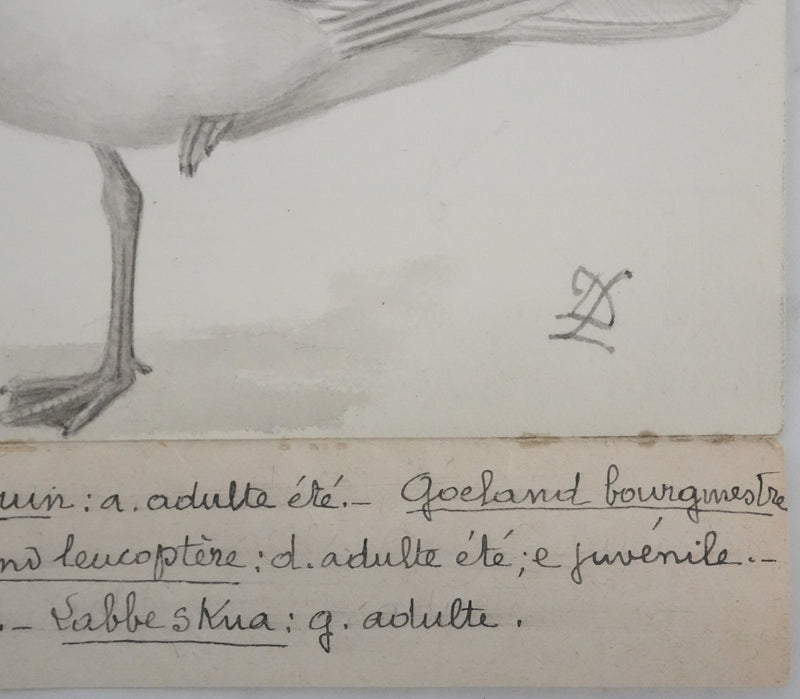 uin : a. adulte été.— Goeland bourgmestre
nd leucoptère : d. adulte été ; e juvénile.—
.— Labbe sKua : g. adulte .